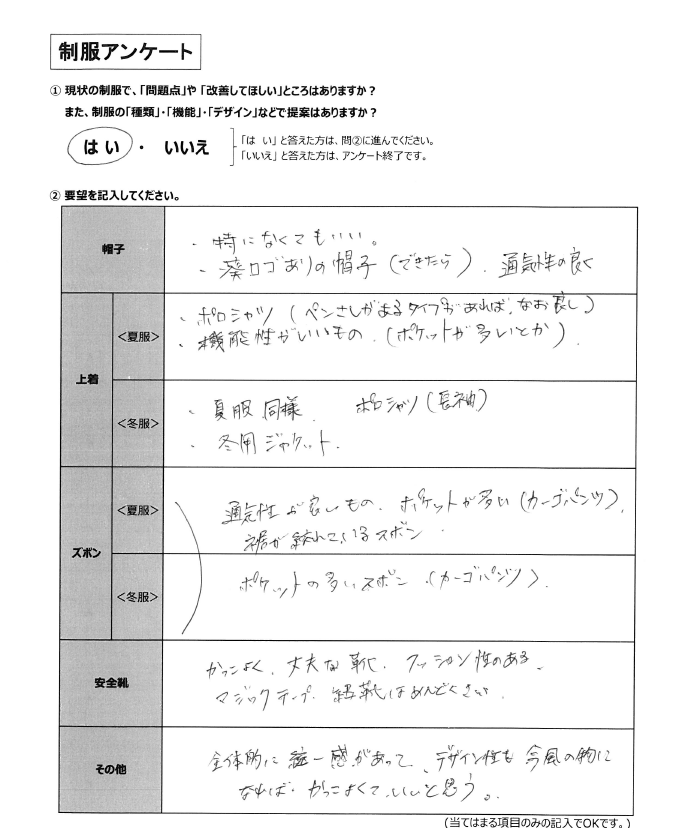 制服アンケート
① 現状の制服で、「問題点」や「改善してほしい」ところはありますか？
また、制服の「種類」・「機能」・「デザイン」などで提案はありますか？
はい ・ いいえ
「は　い」と答えた方は、問②に進んでください。
「いいえ」と答えた方は、アンケート終了です。
② 要望を記入してください。
帽子
・特になくてもいい。
・葵ロゴありの帽子（できたら）、通気性の良く
上着
＜夏服＞
・ポロシャツ（ペンさしがあるタイプがあれば、なお良し）
・機能性がいいもの、（ポケットが多いとか）.
＜冬服＞
・夏服同様、ポロシャツ（長袖）
・冬用ジャケット.
ズボン
＜夏服＞
通気性が良いもの、ポケットが多い（カーゴパンツ）、
裾が絞れているズボン
＜冬服＞
ポケットの多いズボン、（カーゴパンツ）.
安全靴
かっこよく、丈夫な靴、クッション性のある、
マジックテープ、紐靴はめんどくさい.
その他
全体的に統一感があって、デザイン性も今風の物に
なれば、かっこよくて、いいと思う。
（当てはまる項目のみの記入でOKです。）